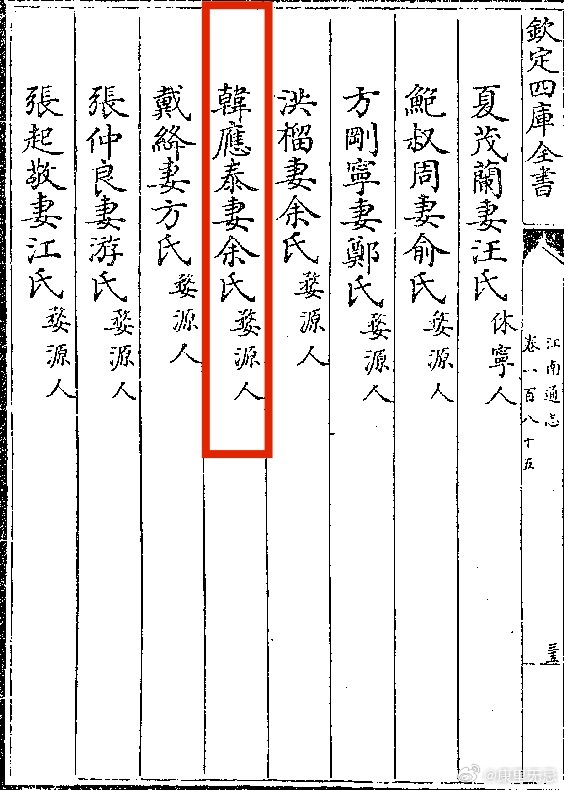 欽定四庫全書
江南通志
卷一百八十五
三五
夏茂蘭妻汪氏休寧人
鮑叔周妻俞氏婺源人
方剛寧妻鄭氏婺源人
洪榴妻余氏婺源人
韓應泰妻余氏婺源人
戴絳妻方氏婺源人
張仲良妻游氏婺源人
張起敬妻江氏婺源人